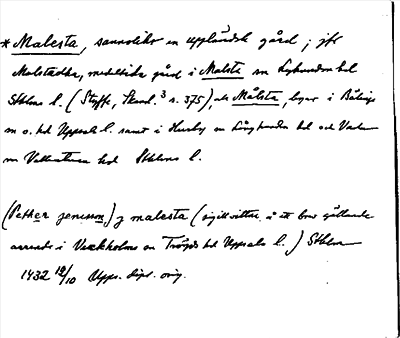 * Malesta, sannolikt en uppländsk gård; jfr
Malstadha, medeltida gård i Malsta sn hd
Sthlms l. (Styffe, Skand.³ s. 375), och Målsta, byar i Bälinge
sn o. hd Uppsala l. samt i Husby en Långhundra hd och Vada
sn Vallentuna hd Sthlms l.
(Pether jenisson) j malesta (sigillvittne i ett brev gällande
arrende i Veckholms sn Trögds hd Uppsala l.) Sthlm
1432 12/10 Upps. dipl. orig.